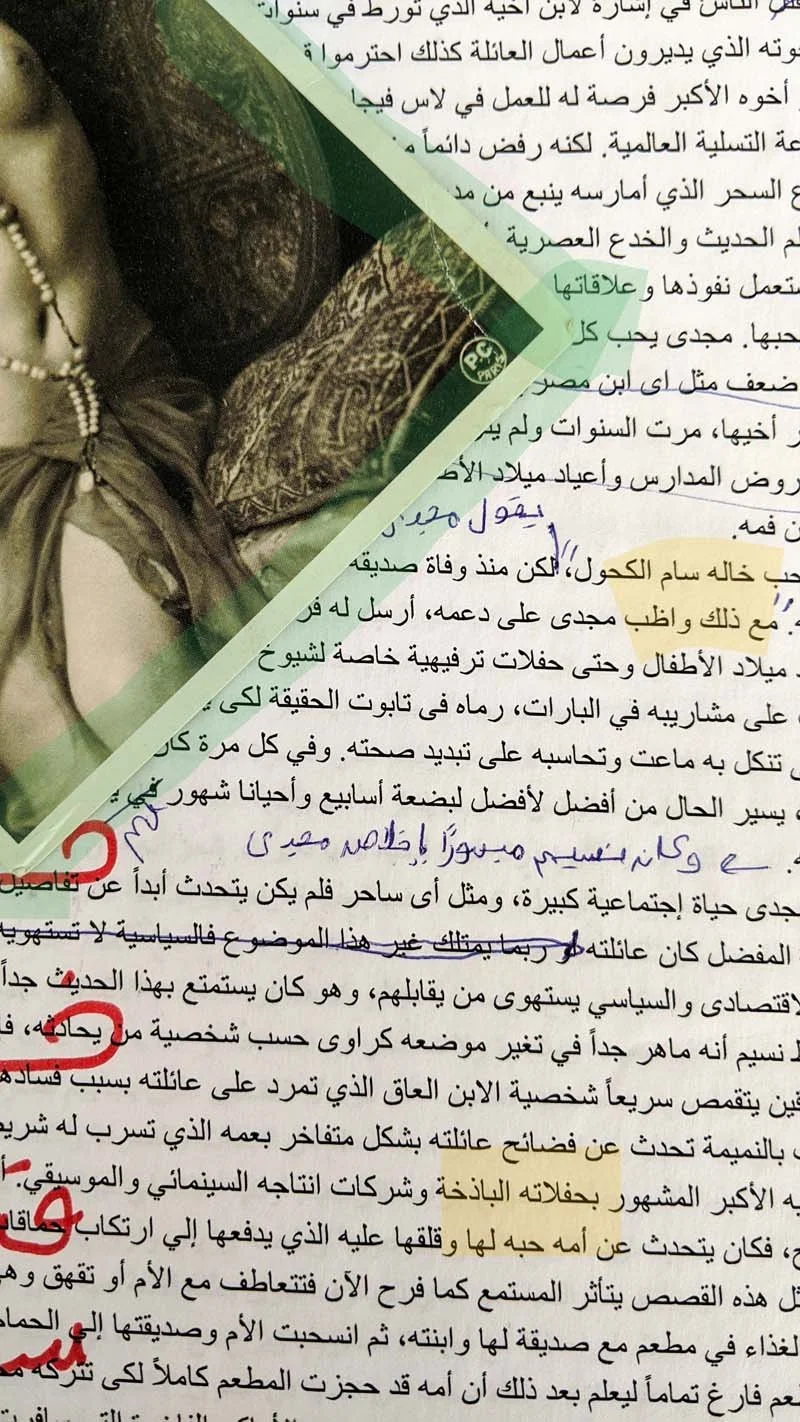 الناس في إشارة لابن أخيه الذي تورط في سنوات
الذي يديرون أعمال العائلة كذلك احترموا
أخوه الأكبر فرصة له للعمل في لاس فيجا
التسلية العالمية. لكنه رفض دائماً
السحر الذي أمارسه ينبع من
الحديث والخدع العصرية
نفوذها وعلاقاتها
مجدى يحب كل
ضعف مثل اى ابن مصر
أخيها، مرت السنوات ولم
المدارس وأعياد ميلاد
فمه.
يقول مجدى
خاله سام الكحول، لكن منذ وفاة صديقه
مع ذلك واظب مجدى على دعمه، أرسل له
ميلاد الأطفال وحتى حفلات ترفيهية خاصة لشيوخ
على مشاريبه في البارات، رماه فى تابوت الحقيقة لكى
تنكل به ماعت وتحاسبه على تبديد صحته. وفي كل مرة
يسير الحال من أفضل لأفضل لبضعة أسابيع وأحيانا شهور
وكان نسيم مبهورًا بإخلاص مجدى
حياة إجتماعية كبيرة، ومثل أى ساحر فلم يكن يتحدث أبداً عن تفاصيل
المفضل كان عائلته ربما يمتلك غير هذا الموضوع فالسياسية لا تستهويه
والسياسي يستهوى من يقابلهم، وهو كان يستمتع بهذا الحديث جداً
نسيم أنه ماهر جداً في تغير موضعه كراوى حسب شخصية من يحادثه،
يتقمص سريعاً شخصية الابن العاق الذي تمرد على عائلته بسبب
بالنميمة تحدث عن فضائح عائلته بشكل متفاخر بعمه الذي تسرب له
الأكبر المشهور بحفلاته الباذخة وشركات انتاجه السينمائي والموسيقي.
فكان يتحدث عن أمه حبه لها وقلقها عليه الذي يدفعها إلي ارتكاب
هذه القصص يتأثر المستمع كما فرح الآن فتتعاطف مع الأم أو تقهق
في مطعم مع صديقة لها وابنته، ثم انسحبت الأم وصديقتها إلي
فارغ تماماً ليعلم بعد ذلك أن أمه قد حجزت المطعم كاملاً لكى تتركه
P.C
PARIS